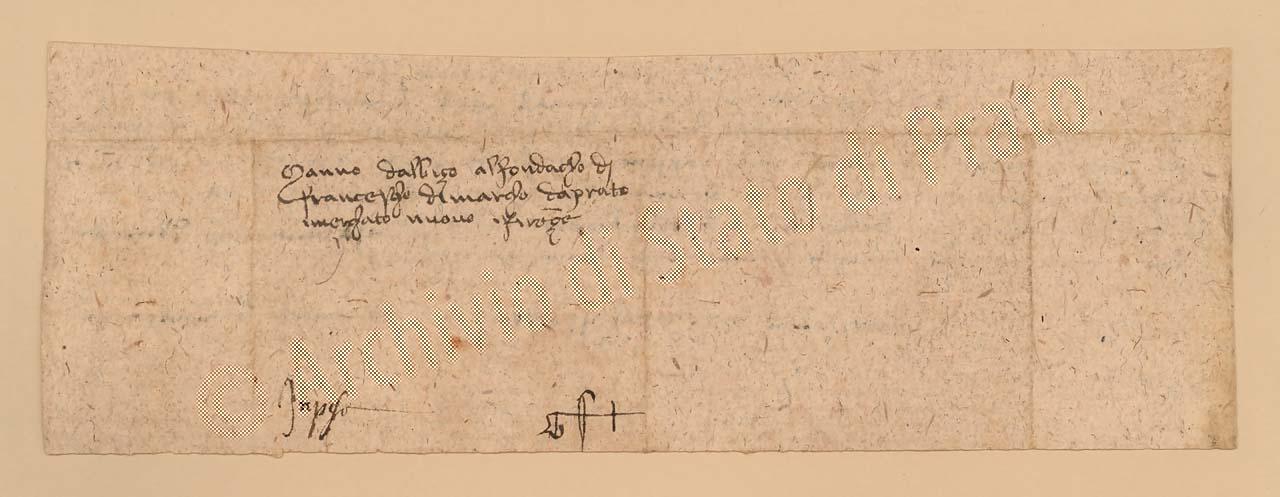 Manno dalbizo alfondacho di
francescho di marcho daprato
imerchato nuovo
© Archivio di Stato di Prato